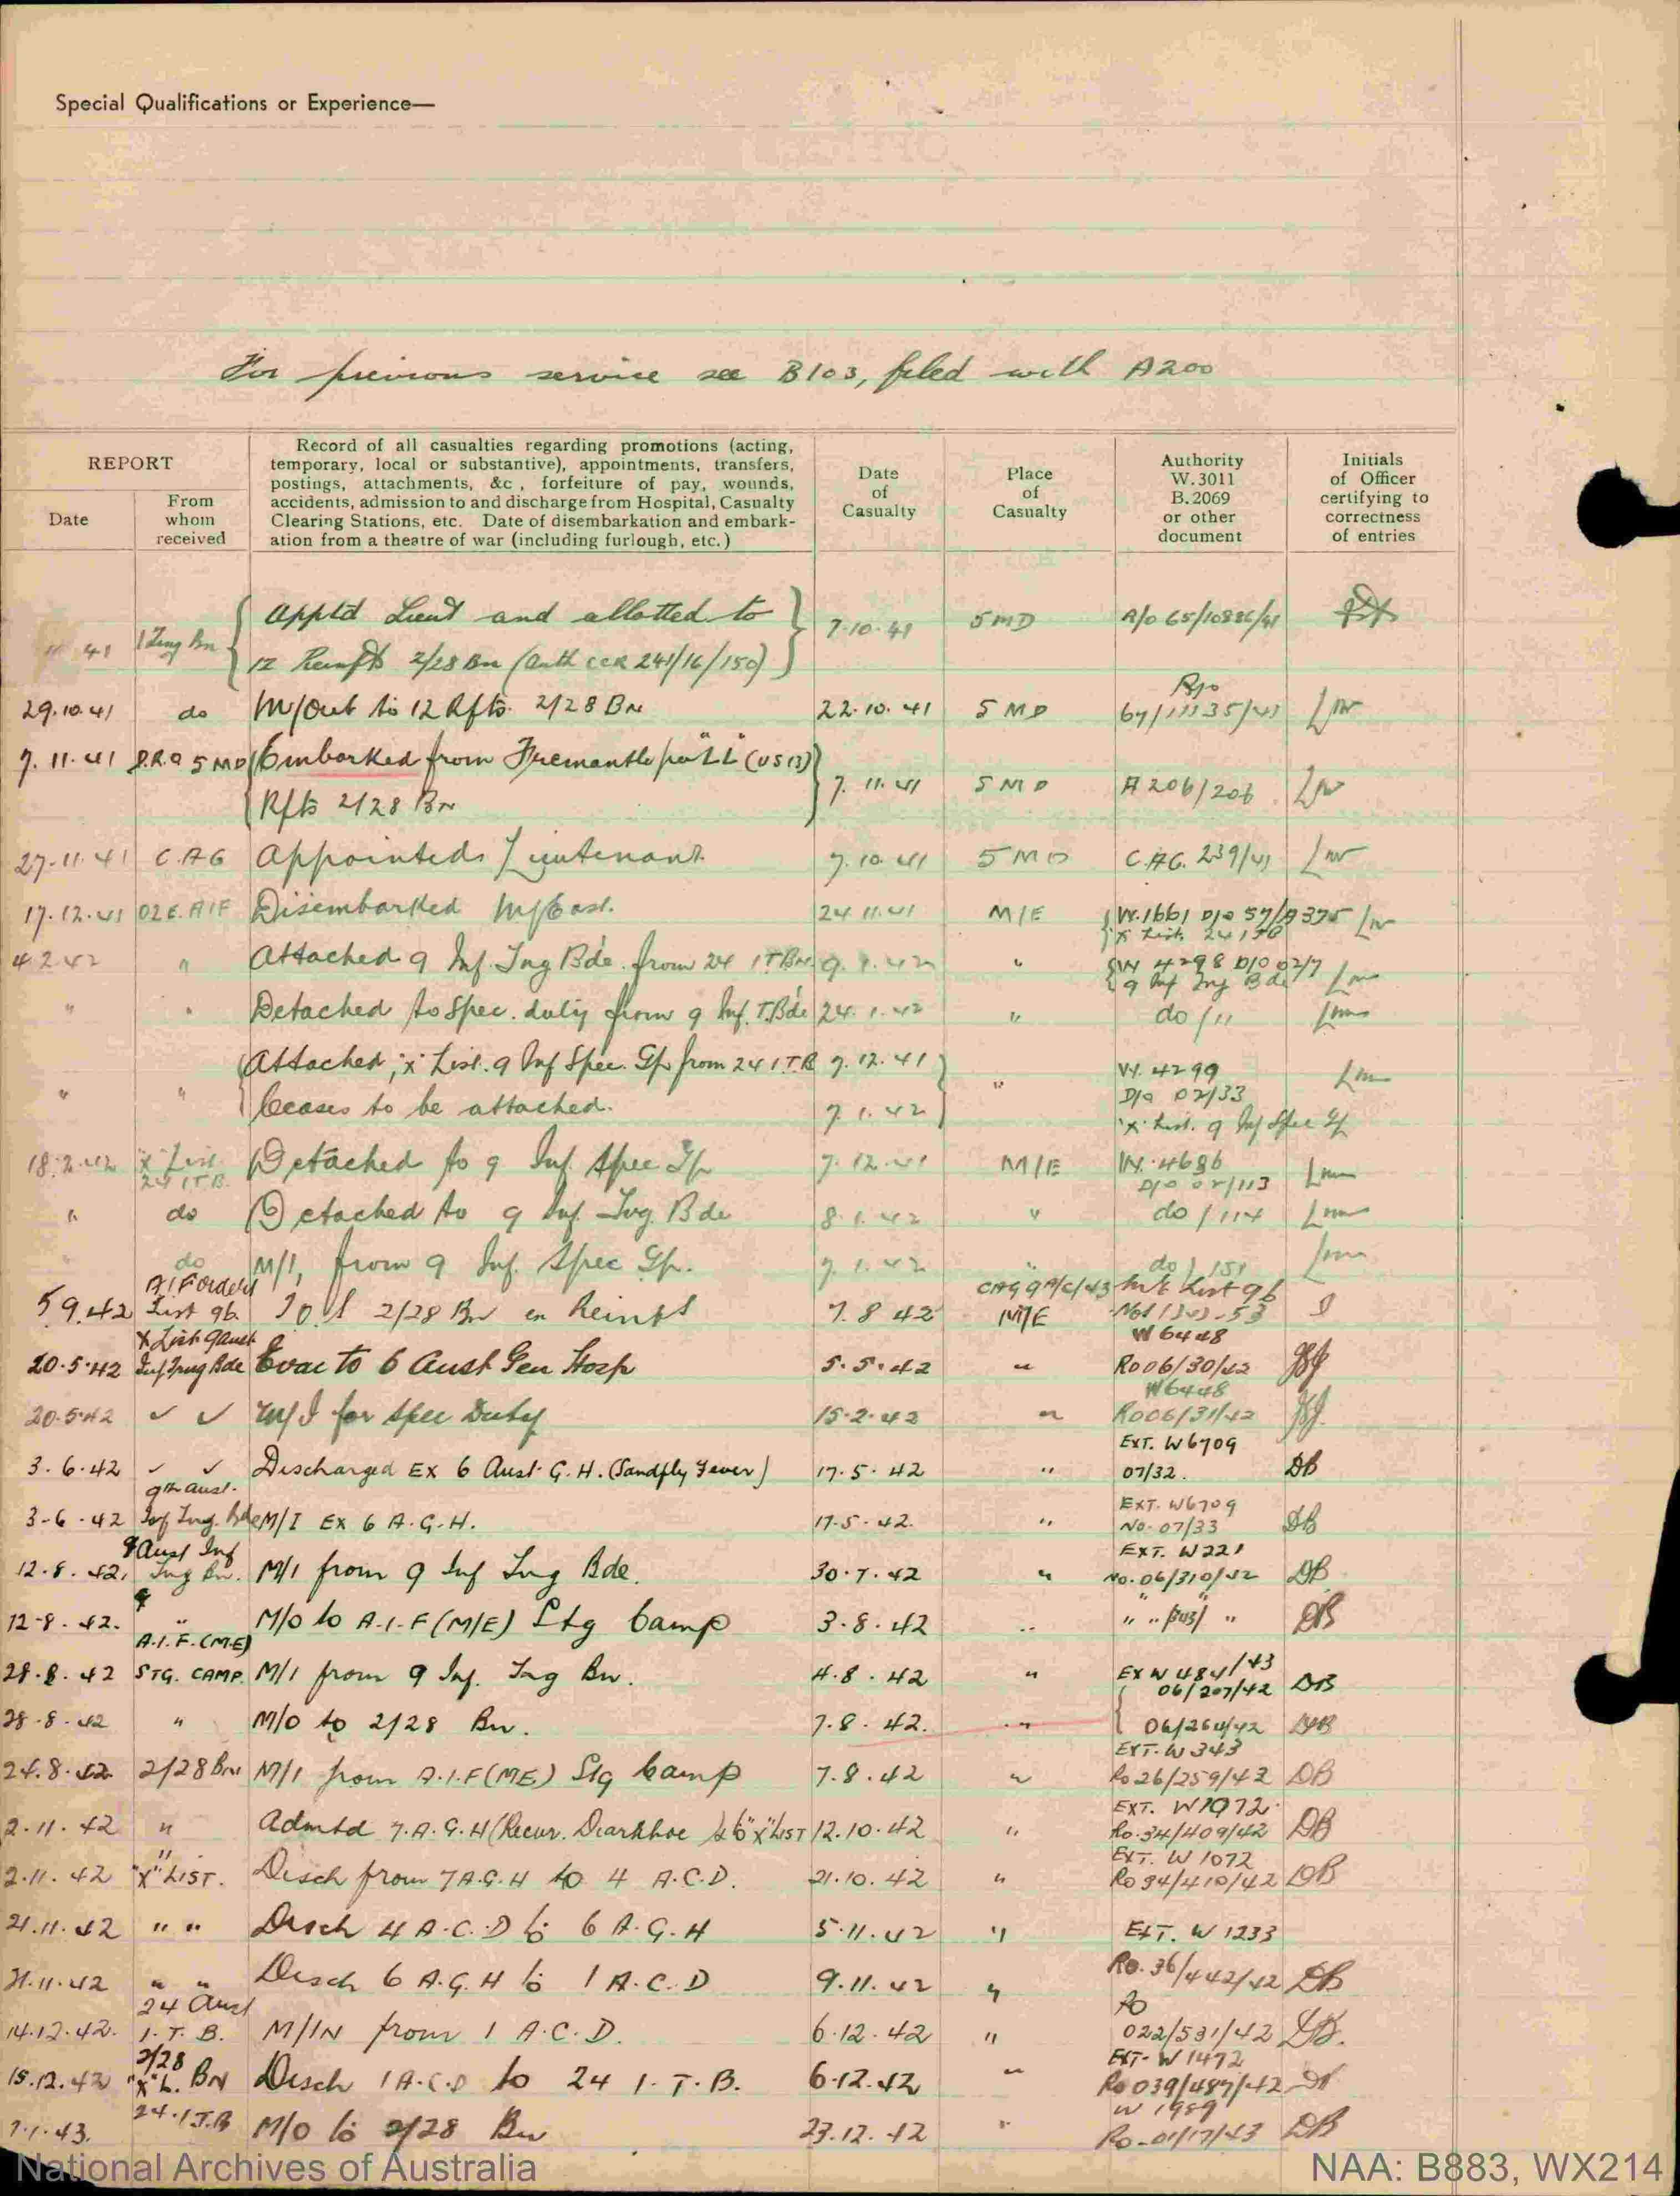 Special Qualifications or Experience—
For previous service see B103, filed with A200
REPORT
Date
From whom received
Record of all casualties regarding promotions (acting,
temporary, local or substantive), appointments, transfers,
postings, attachments, &c , forfeiture of pay, wounds,
accidents, admission to and discharge from Hospital, Casualty
Clearing Stations, etc. Date of disembarkation and embark-
ation from a theatre of war (including furlough, etc.)
Date of Casualty
Place of Casualty
Authority W.3011 B.2069 or other document
Initials of Officer certifying to correctness of entries
41 1 Trng Bn Appt'd Lieut and allotted to 7.10.41 5 MD R/o 65/10886/41
12 Reinfts 2/28 Bn (Auth CCR 241/16/150)
29.10.41 do M/Out to 12 Rfts. 2/28 Bn 22.10.41 5 MD R/o
7.11.41 D.R.O 5 MD Embarked from Fremantle "LL" (US 13) 7.11.41 5 MD A206/206
Rfts 2/28 Bn
27-11.41 C.A.G Appointed Lieutenant 7.10.41 5 MD C.A.G. 239/41
17.12.41 O2E. AIF Disembarked M/East. 24.11.41 M/E W.1661 D/o 57/A375
"X" List 24 ITB
4.2.42 " Attached 9 Inf. Trg Bde. from 24 I T Bn. 9.1.42 " W 4298 D/O 02/7
9 Inf Trg Bde
" " Detached to spec. duty from 9 Inf. T. Bde 24.1.42 " do /11
Attached, "X" List. 9 Inf Spec. Gp from 24 I.T.B 7.12.41 W. 4299
" " Ceases to be attached. 7.1.42 " D/o 02/33
"X" List. 9 Inf Spec Gp
18.2.42 "X" List 24 ITB. Detached to 9 Inf. Spec Gp 7.12.41 M/E W. 4686
D/o 02/113
" do Detached to 9 Inf. Trg. Bde 8.1.42 " do / 114
do M/I, from 9 Inf. Spec Gp. 7.1.42 " do / 151
5.9.42 A.I.F Orders List 96. T.O.S 2/28 Bn ex Reinfts 7.8.42 M/E M/E List 96
20.5.42 X List 9 Aust Inf Trng Bde Evac to 6 Aust Gen Hosp 5.5.42 " W 6448
Ro 06/30/42
20.5.42 ✓ ✓ M/I for Spec Duty 15.2.42 " W6448
Ro 06/31/42
3.6.42 ✓ ✓ Discharged Ex 6 Aust. G.H. (Sandfly Fever) 17.5.42 " EXT. W6709
07/32. DB
3-6-42 9th Aust. Inf Trng. Bde M/I Ex 6 A.G.H. 17.5.42. " EXT. W6709
No. 07/33 DB
12.8.42. 9 Aust Inf Trng Bn. M/I from 9 Inf Trng Bde. 30.7.42 " EXT. W221
No. 06/310/42 DB
12-8.42. " M/O to A.I.F (M/E) Stg Camp 3.8.42 " DB
28.8.42 A.I.F. (M.E) STG. CAMP. M/I from 9 Inf. Trng Bn. 4.8.42 " Ex W 484/43
06/207/42 DB
28.8.42 " M/O to 2/28 Bn. 7.8.42. " DB
24.8.42 2/28 Bn M/I from A.I.F (ME) Stg Camp 7.8.42 " EXT. W 343
Ro 26/259/42 DB
2.11.42 " Admtd 7.A.G.H (Recur. Diarrhoe to "X" LIST 12.10.42 " EXT. W1072
Ro. 34/409/42 DB
2.11.42 "X" LIST. Disch from 7 A.G.H to 4 A.C.D. 21.10.42 " EXT. W 1072
Ro 34/410/42 DB
21.11.42 " " Disch 4 A.C.D to 6 A.G.H 5.11.42 " EXT. W 1233
21.11.42 " " Disch 6 A.G.H to 1 A.C.D 9.11.42 " Ro. 36/442/42 DB
14.12.42. 24 Aust I.T.B. M/IN from 1 A.C.D. 6.12.42 " Ro
022/531/42 DB.
15.12.42 2/28 Bn "X" L. Disch 1 A.C.D to 24 I.T.B. 6.12.42 " EXT. W1472
Ro 039/487/42
7.1.43. 24.I.T.B M/O to 2/28 Bn 23.12.42 " W 1989
Ro-01/17/43 DB
National Archives of Australia
NAA: B883, WX214